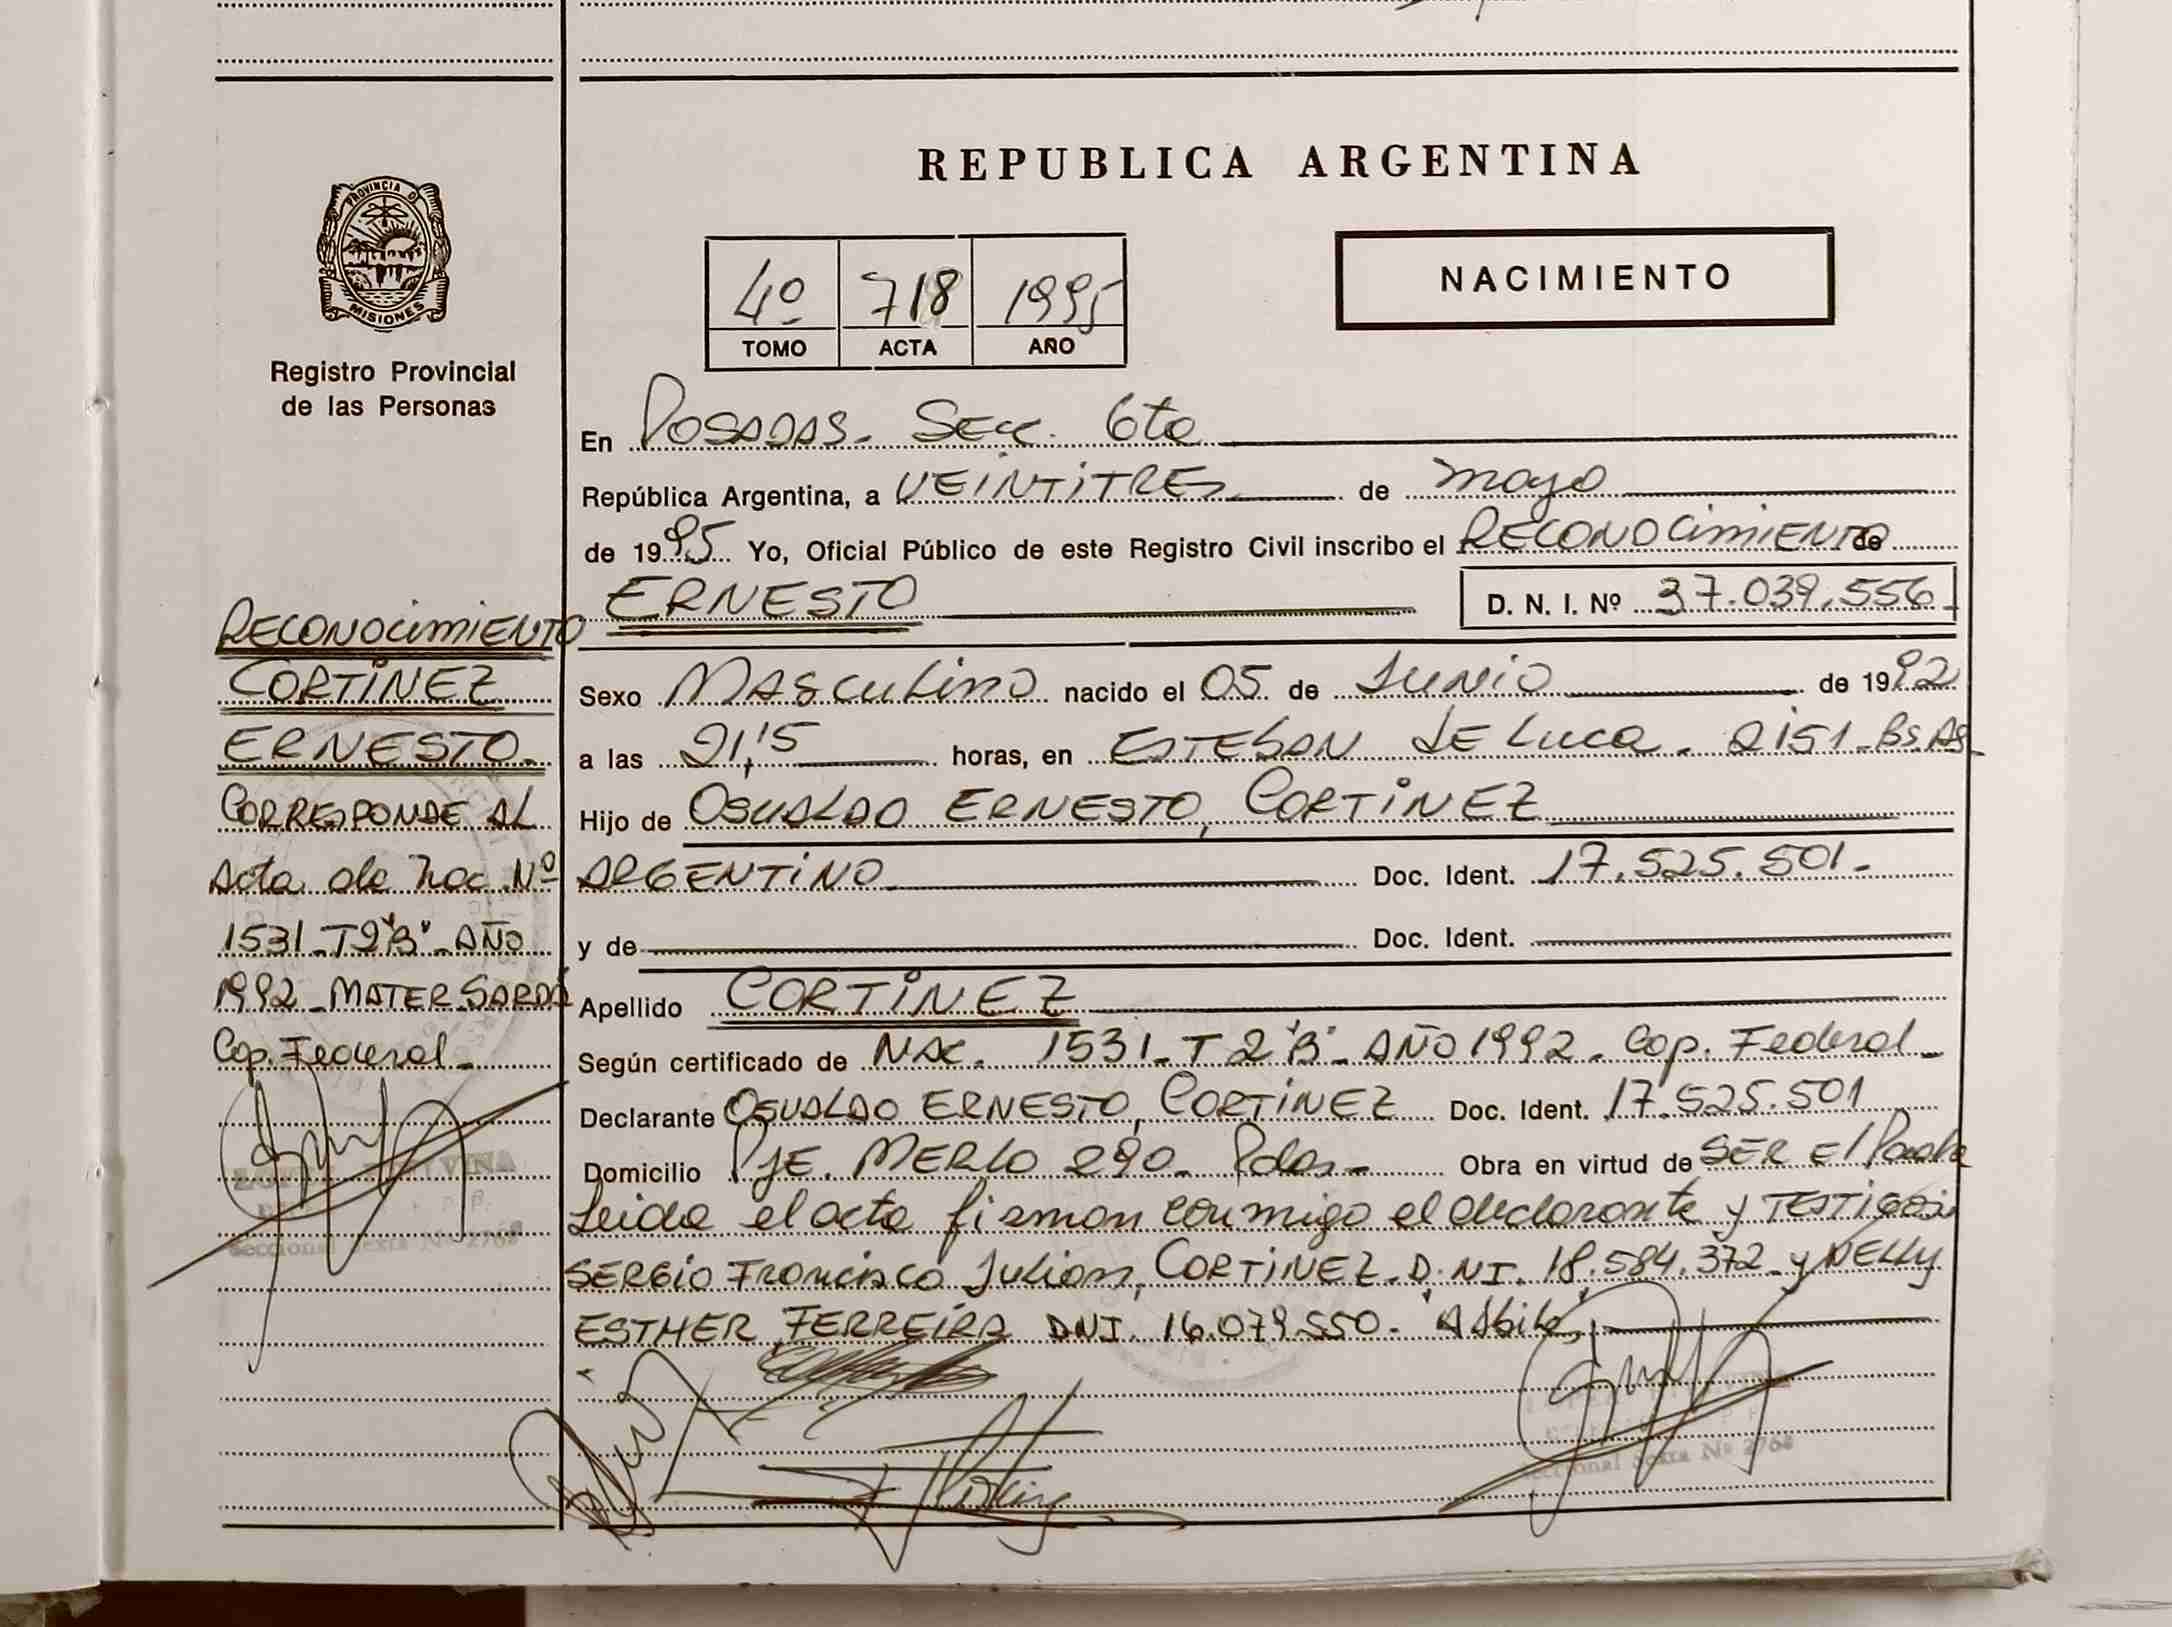 PROVINCIA D
MISIONES
Registro Provincial
de las Personas
RECONOCIMIENTO
CORTINEZ
ERNESTO.
CORRESPONDE AL
Acta de Nac. Nº
1531-T2"B"-AÑO
1992-MATER.SARDÁ
Cap. Federal-
REPUBLICA ARGENTINA
NACIMIENTO
4º 718 1995
TOMO ACTA AÑO
En POSADAS- Secc. 6ta
República Argentina, a VEINTITRES de mayo
de 1995 Yo, Oficial Público de este Registro Civil inscribo el RECONOCIMIENTO de
ERNESTO D. N. I. Nº 37.039.556-
Sexo MASCULINO nacido el 05 de JUNIO de 1992
a las 21,15 horas, en ESTEBAN DE LUCA. 2151-Bs As-
Hijo de OSVALDO ERNESTO, CORTINEZ
ARGENTINO Doc. Ident. 17.525.501-
y de Doc. Ident.
Apellido CORTINEZ
Según certificado de NAC. 1531-T2"B"-AÑO 1992-Cap. Federal-
Declarante OSVALDO ERNESTO, CORTINEZ Doc. Ident. 17.525.501
Domicilio PJE. MERLO 290- Pdas- Obra en virtud de SER El Padre
Leida el acta firman conmigo el declarante y TESTIGOS:
SERGIO Francisco Julian, CORTINEZ-D.NI. 18.584.372-y NELLY
ESTHER FERREIRA DNI. 16.079.550-
Seccional Sexta Nº 2768
Seccional Sexta Nº 2768